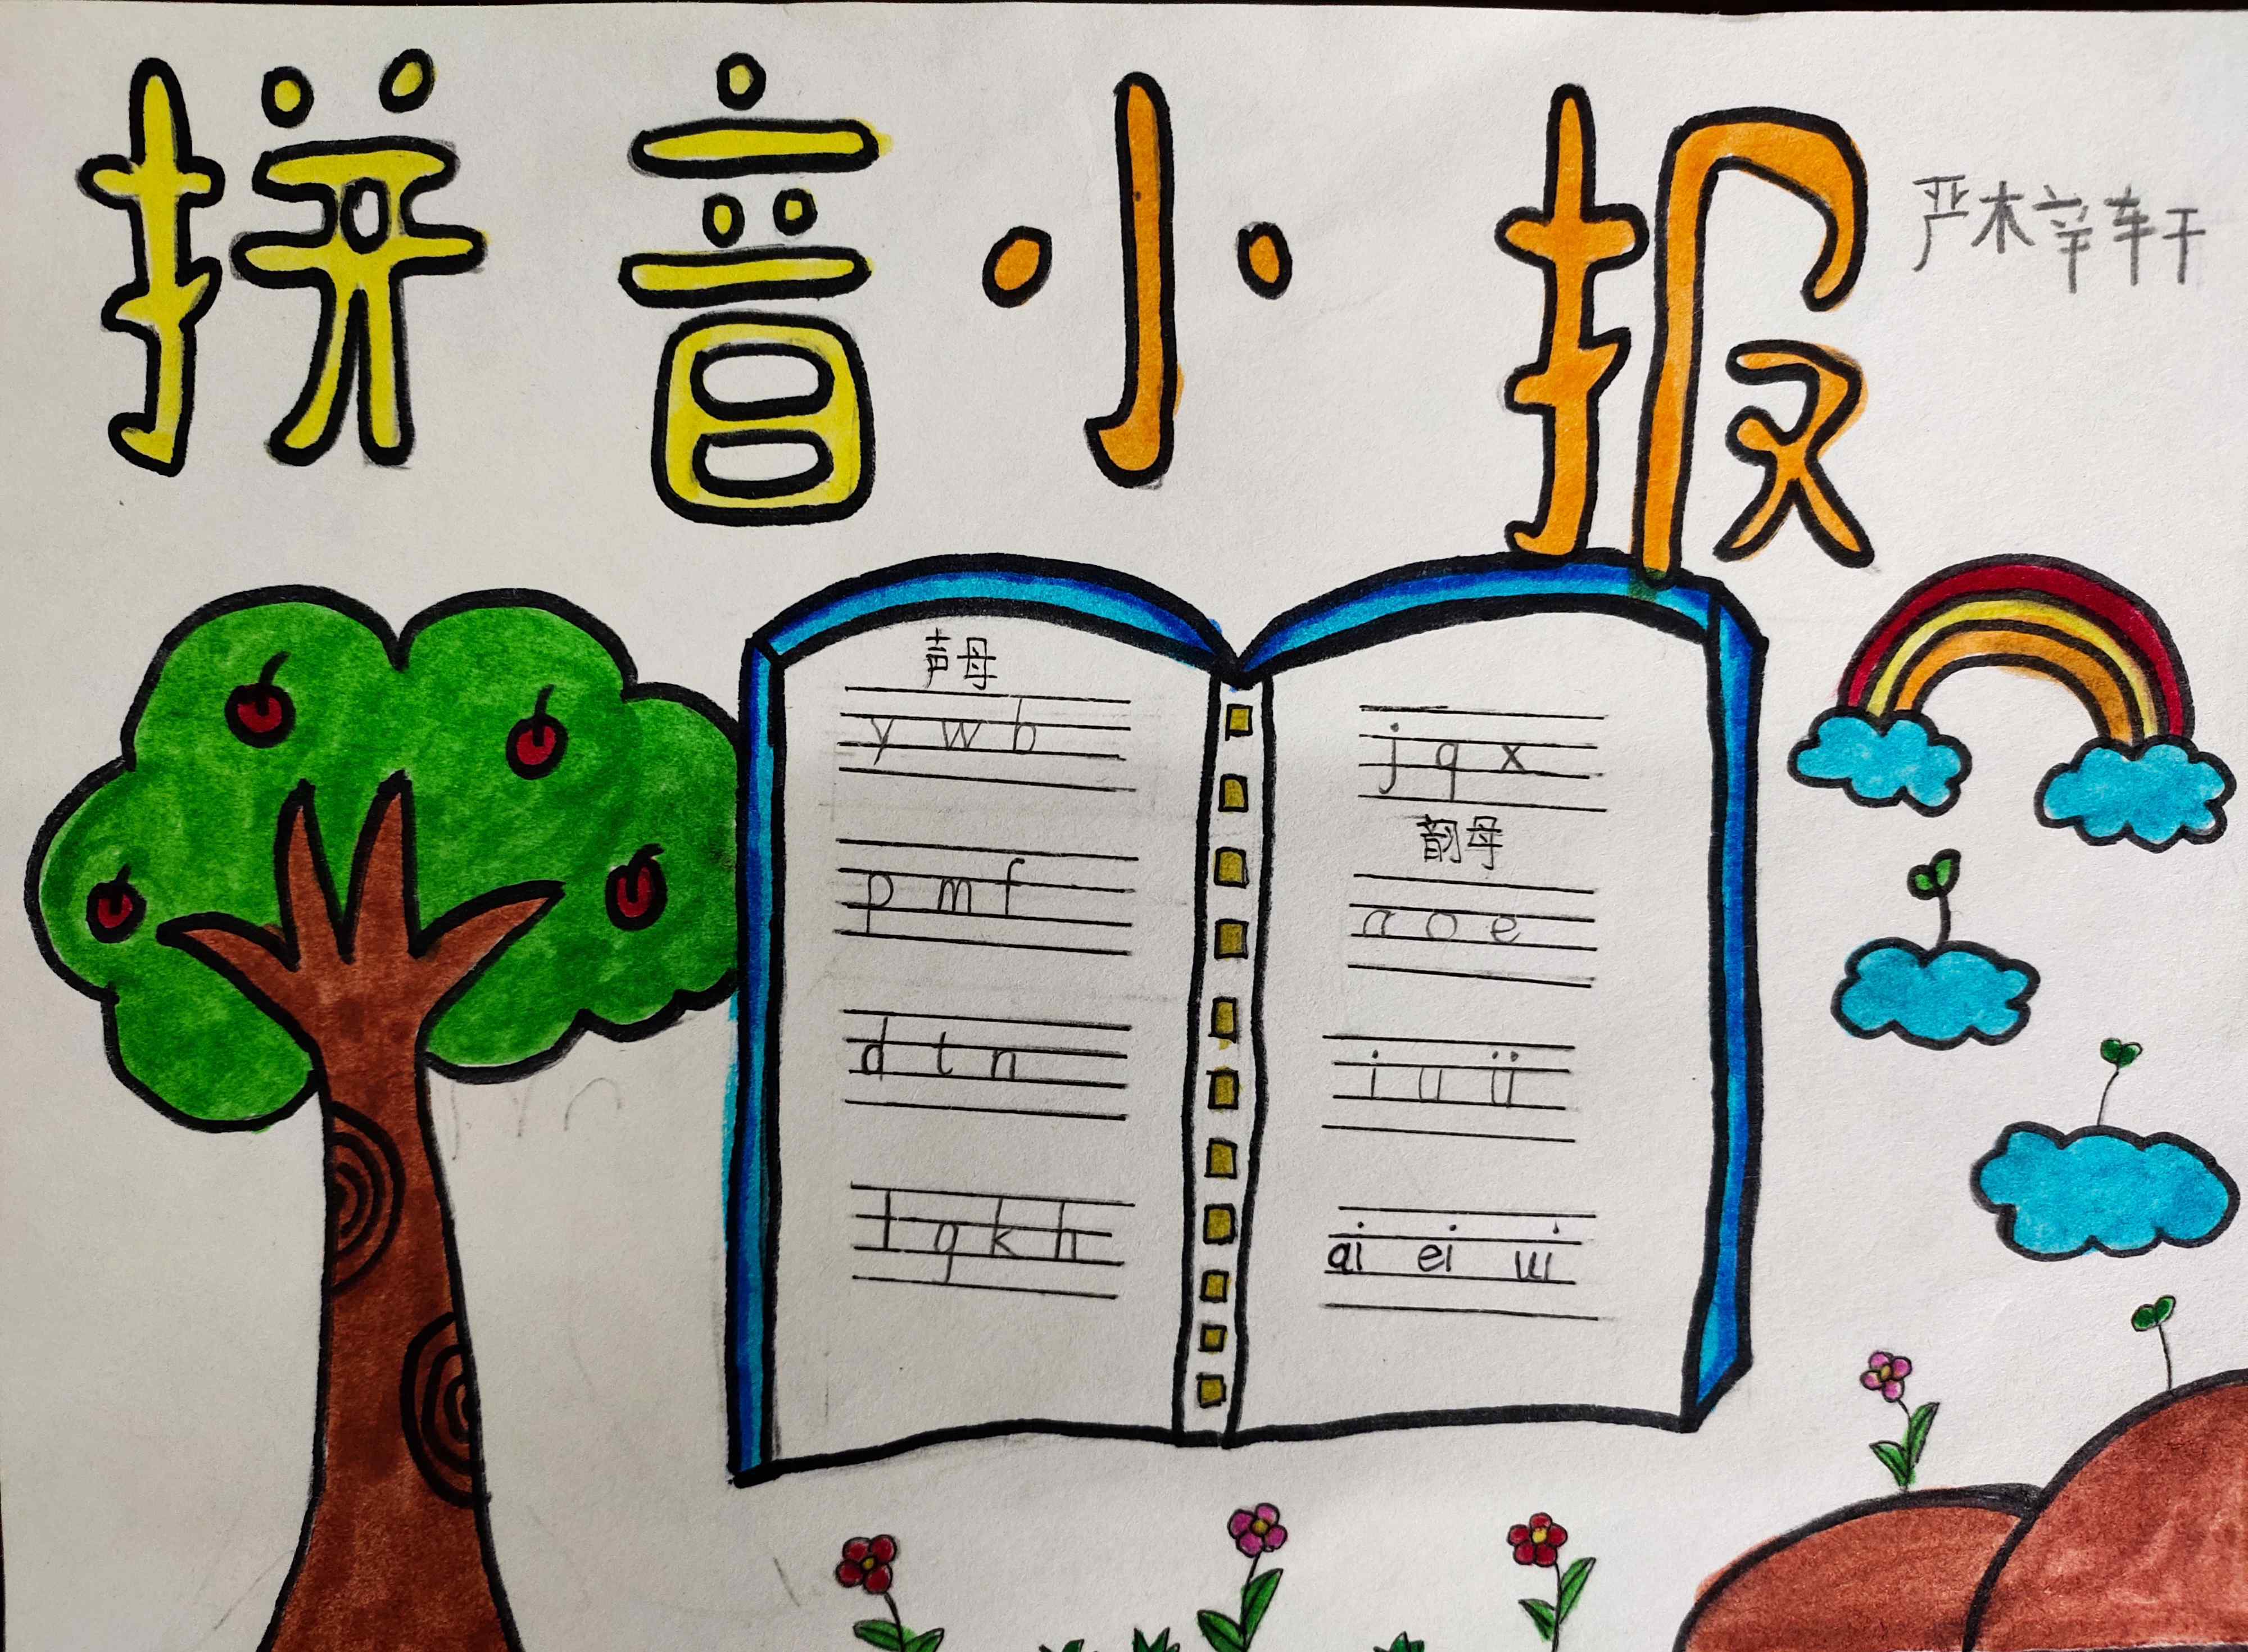 拼音小报
严梓轩
声母
y w b
p m f
d t n
l g k h
j q x
韵母
a o e
i u ü
ai ei ui